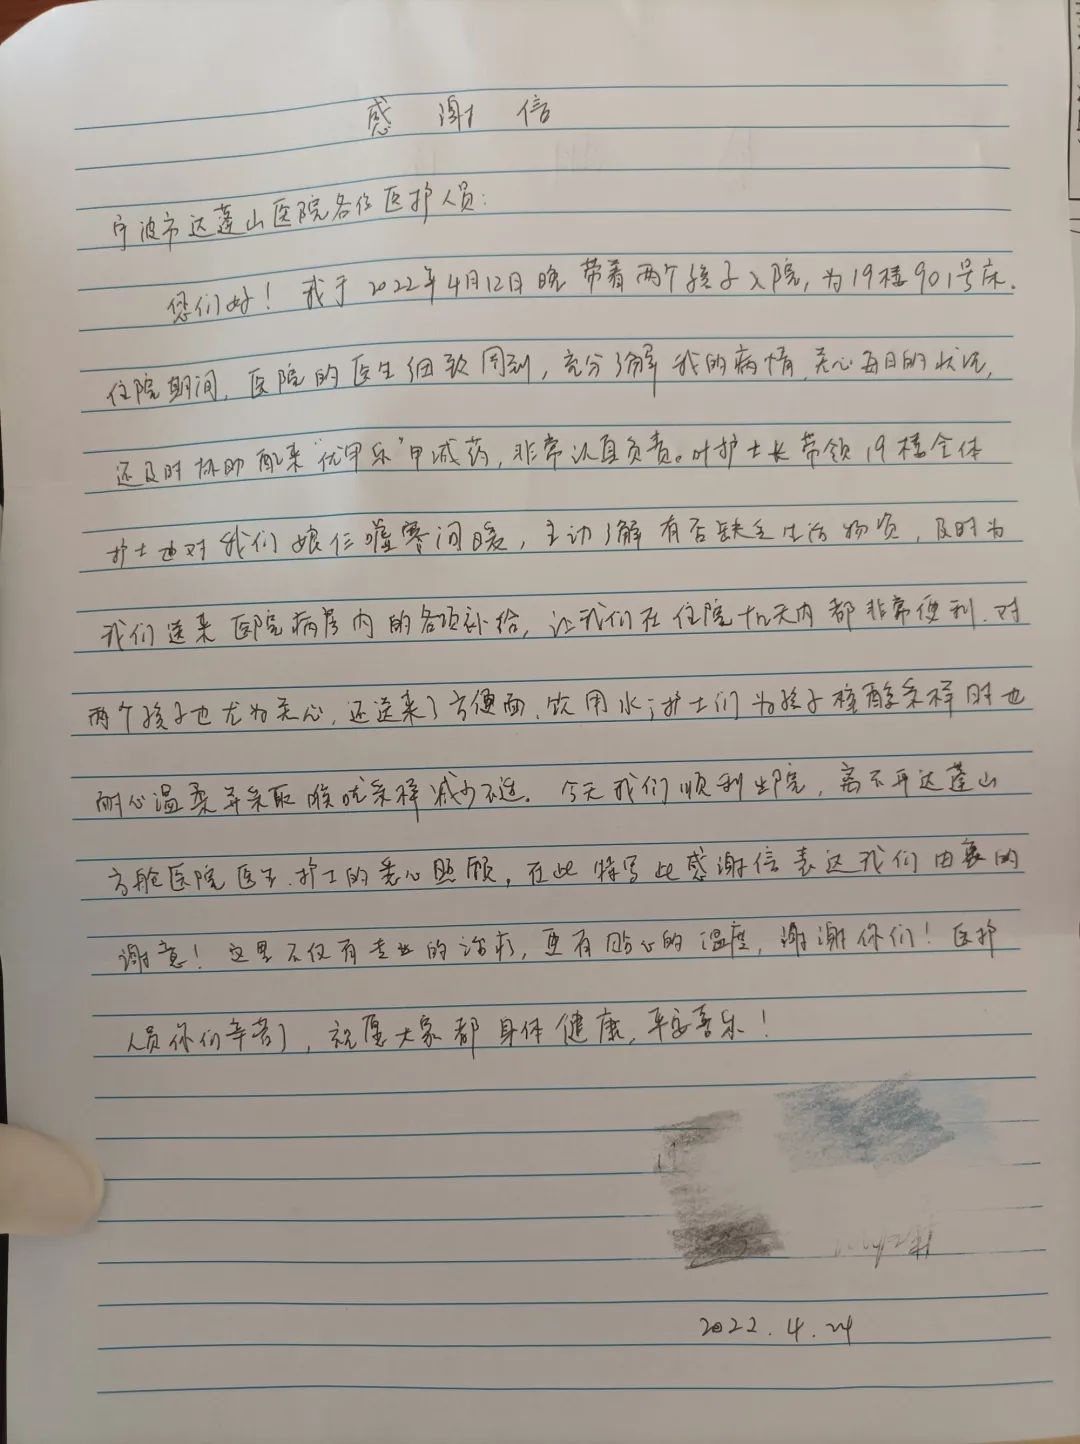 感谢信
宁波市达蓬山医院各位医护人员:
您们好！我于2022年4月12日晚带着两个孩子入院,为19楼901号床.
住院期间,医院的医生细致周到,充分了解我的病情,关心每日的状况,
还及时协助配来“优甲乐”甲减药,非常认真负责。叶护士长带领19楼全体
护士也对我们娘仨嘘寒问暖,主动了解有否缺乏生活物资,及时为
我们送来医院病房内的各项补给,让我们在住院十几天内都非常便利.对
两个孩子也尤为关心,还送来了方便面,饮用水;护士们为孩子核酸采样时也
耐心温柔并采取喉咙采样减少不适.今天我们顺利出院,离不开达蓬山
方舱医院医生.护士的悉心照顾,在此特写此感谢信表达我们由衷的
谢意！这里不仅有专业的治疗,更有贴心的温度,谢谢你们！医护
人员你们辛苦了,祝愿大家都身体健康,平安喜乐！
2022.4.24